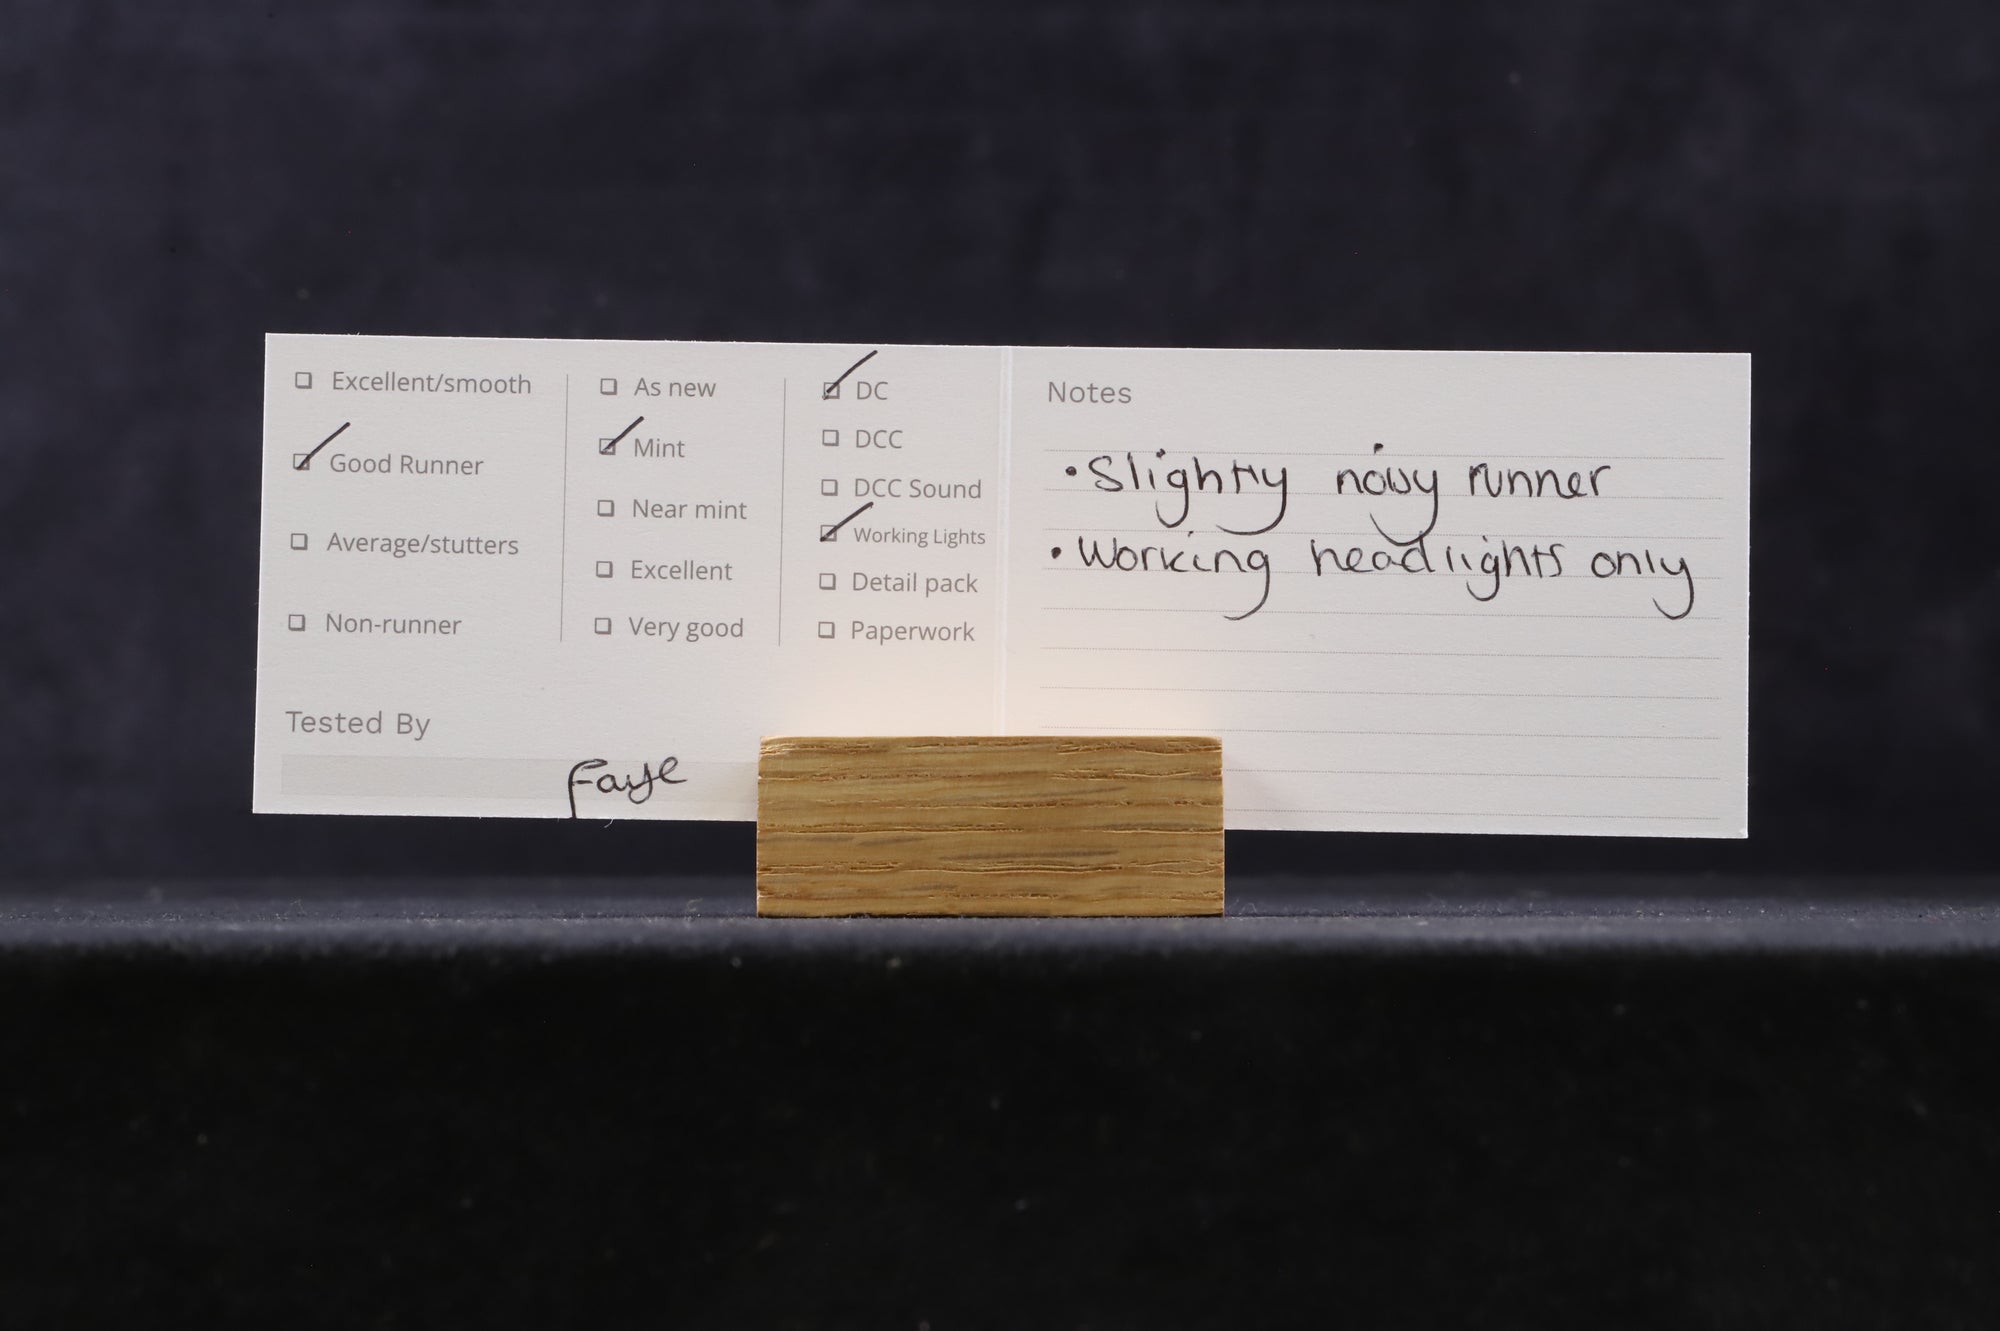 Excellent/smooth
Good Runner
Average/stutters
Non-runner
As new
Mint
Near mint
Excellent
Very good
DC
DCC
DCC Sound
Working Lights
Detail pack
Paperwork
Tested By
Faye
Notes
• Slightly noisy runner
• Working headlights only